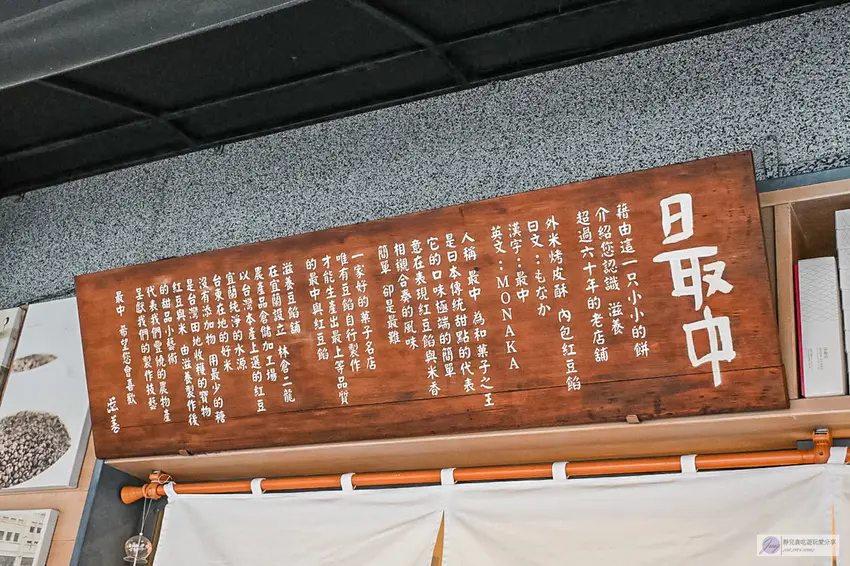 最中
藉由這一只小小的餅
介紹您認識 滋養
超過六十年的老店舖
外米烤皮酥 內包紅豆餡
日文：もなか
漢字：最中
英文：MONAKA
人稱 最中 為和菓子之王
是日本傳統甜點的代表
它的口味極端的簡單
意在表現紅豆餡與米香
相襯合奏的風味
簡單 卻是最難
一家好的菓子名店
唯有豆餡自行製作
才能生產出最上等品質
的最中與紅豆餡
滋養豆餡舖
在宜蘭設立 林倉二龍
農產品倉儲加工場
以台灣本產上選的紅豆
宜蘭純淨的水源
台東在地的好米
沒有添加物 用最少的糖
是台灣田地收穫的寶物
紅豆與米 由滋養製作後
的甜品小藝術
代表我們豐饒的農物產
呈獻我們的製作技藝
最中 希望您會喜歡
滋養
靜兒貪吃遊玩愛分享